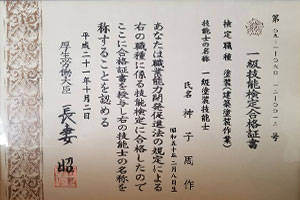 一級技能検定合格証書
検定職種 塗装(建築塗装作業)
技能士の名称 一級塗装技能士
氏名 神子周作
昭和五十五年二月八日生
あなたは職業能力開発促進法の規定による
右の職種に係る技能検定に合格したので
ここに合格証書を授与し右の技能士の名称を
称することを認める
平成二十一年十月二日
厚生労働大臣 長妻 昭